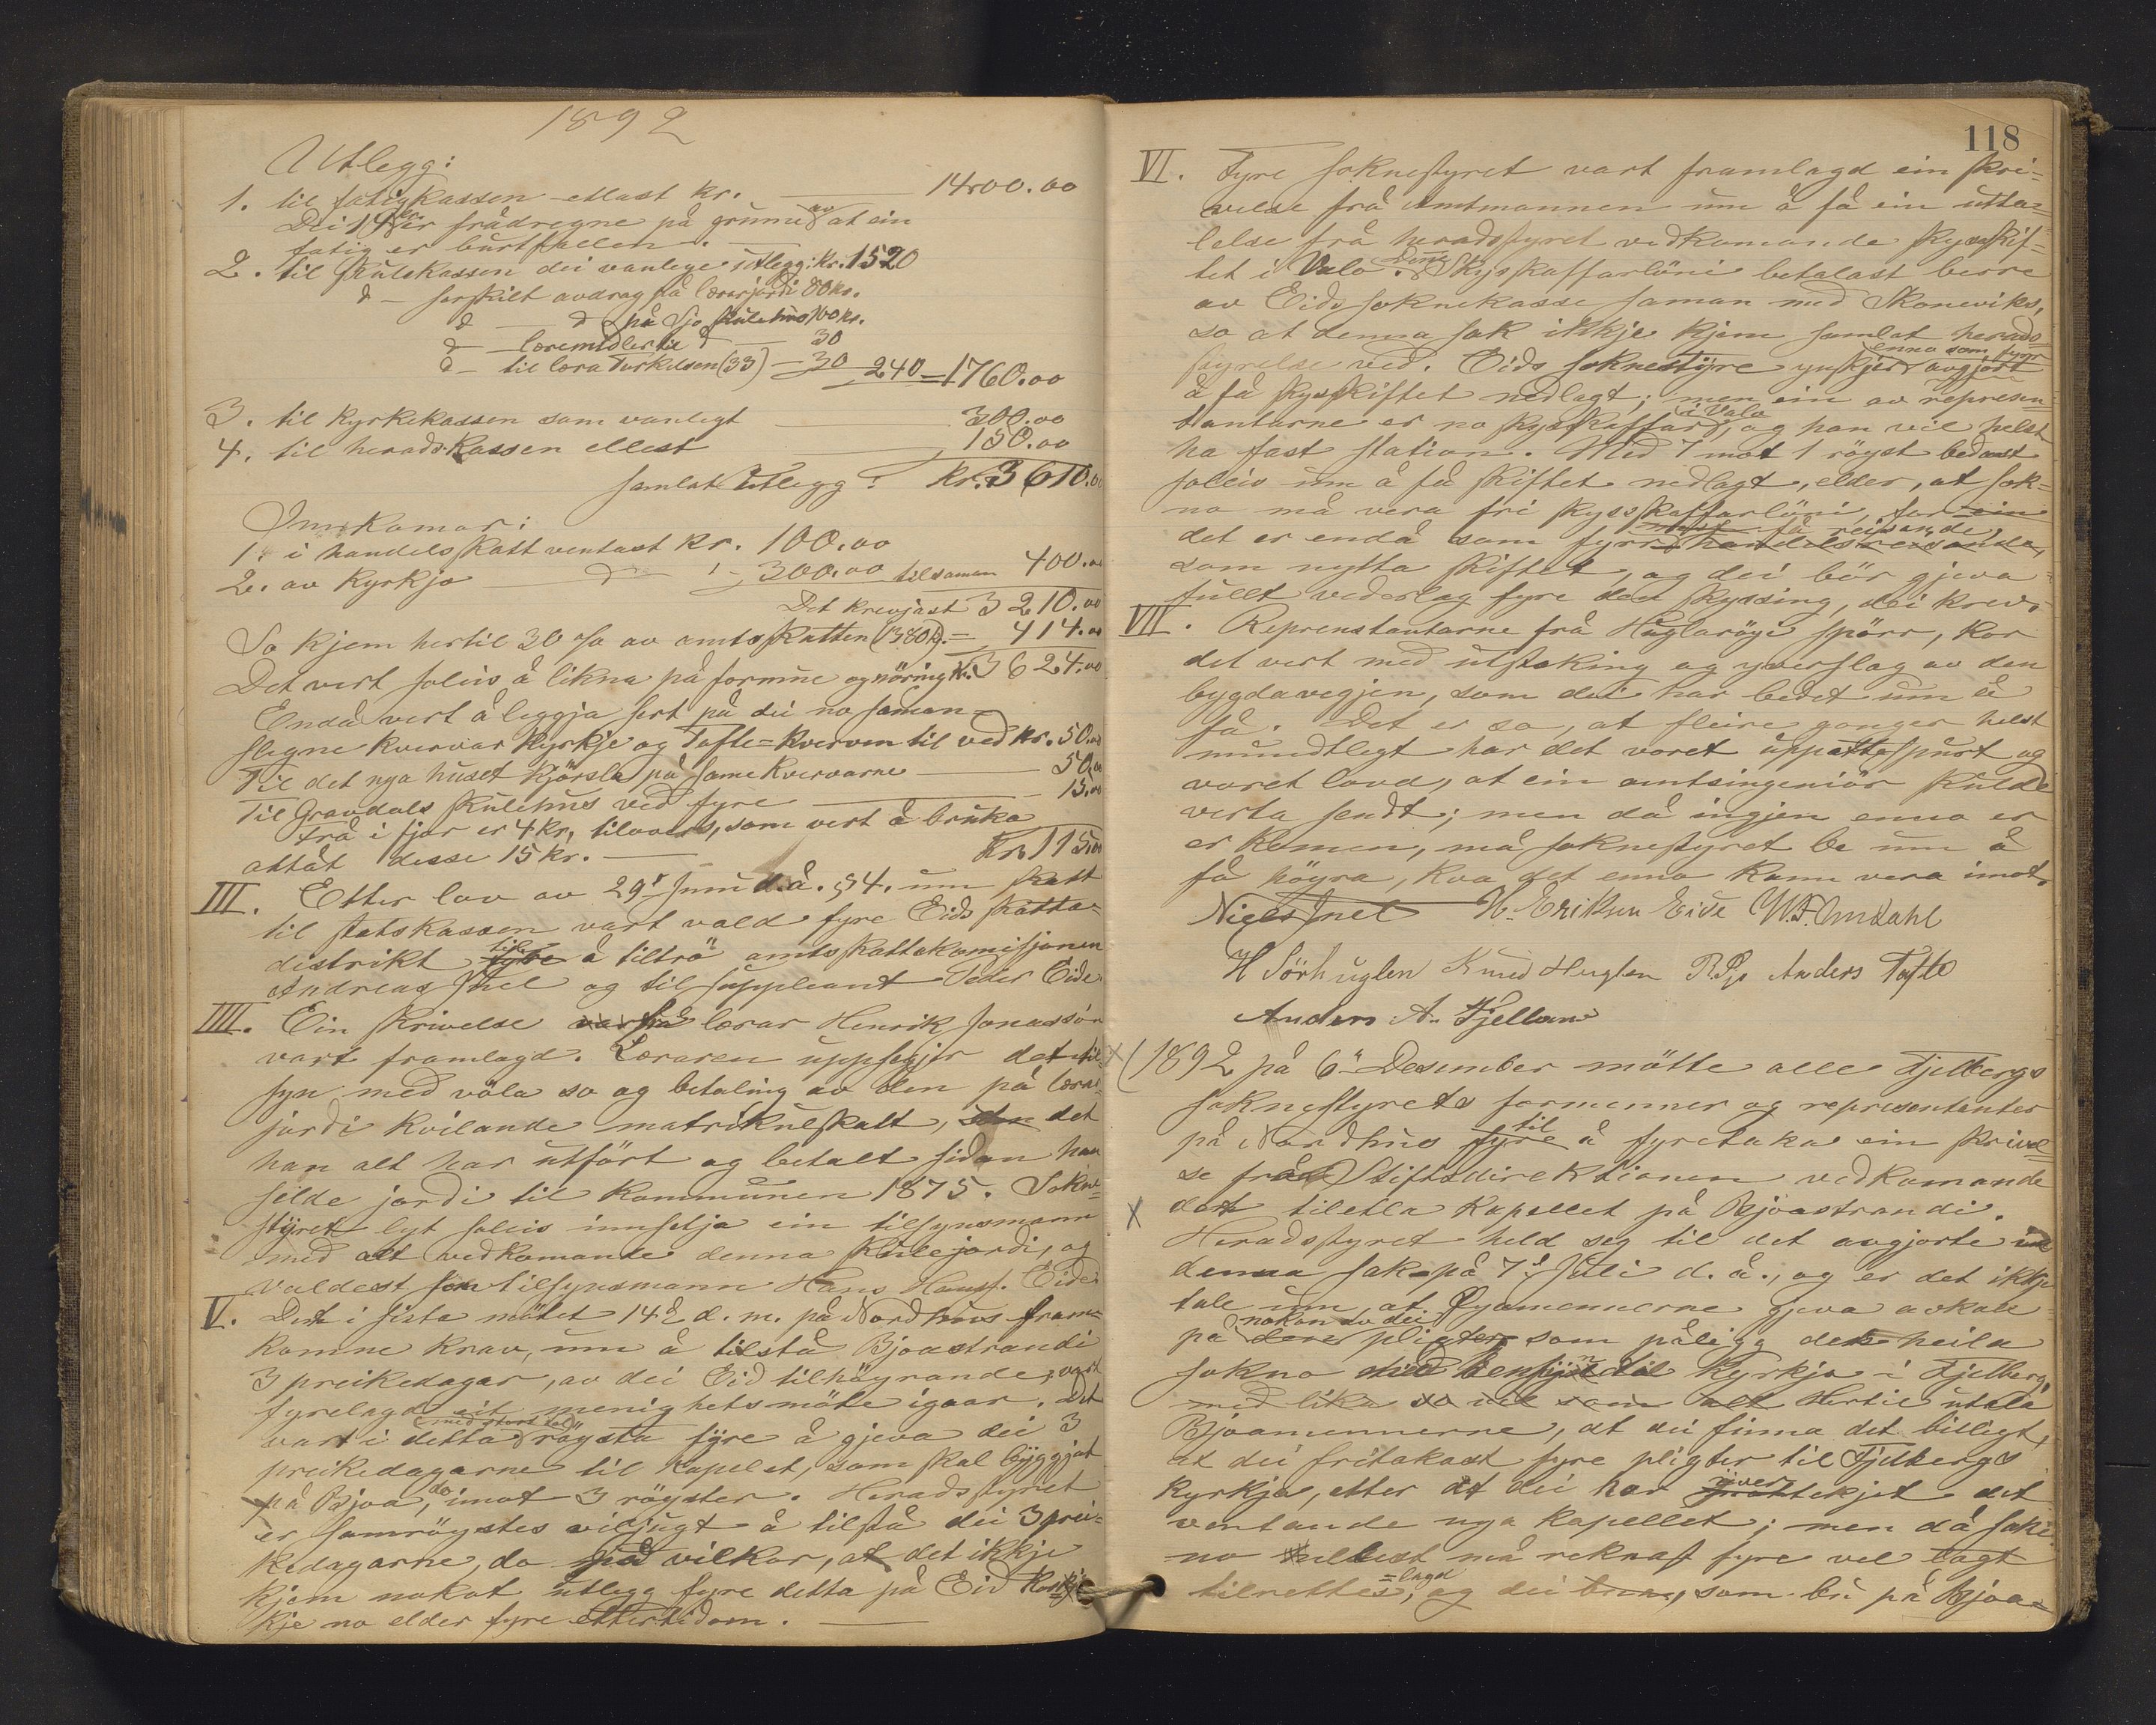 1892
Utlegg:
1. til fatigkassen ellast kr. 1400.00
Dei 14 kr. er frådregne på grunn av at ein
fatig er burtfallen.
2. til skulekassen dei vanlege utlegg: kr. 1520
d – serskilt avdrag på lærarjordi 80 kr.
d – d på Sjo skulehus 100 kr.
d – læremidler til d – 30
d – til læra Turkelsen (33) – 30 – 240 = 1760.00
3. til kyrkekassen som vanlegt 300.00
4. til heradskassen ellest 150.00
samlat Utlegg: kr. 3610.00
Innkomar:
1. i handelsskatt ventast kr. 100.00
2. av kyrkja d – 300.00 tilsaman 400.00
Det krevjast 3210.00
So kjem hertil 30 % av amtsskatten (1380 kr.) = 414.00
Det vert soleis å likna på formue og næring kr. 3624.00
Endå vert å leggja sert på dei no saman-
slegne kvervar Kyrkje og Tofte-kverven til ved kr. 50.00
Til det nya huset kjörsla på same kvervarne 50.00
Til Gravdals skulehus ved fyre 15.00
frå i fjor er 4 kr. tilovers, som vert å bruka
attåt desse 15 kr. Kr. 115.00
III. Etter lov av 29d Juni d.å. § 4. um skatt
til statskassen vart vald fyre Eids skatta-
distrikt til å tiltrö amtsskattakomisjonen
Andreas Snel og til suppleant Peder Eide
IIII. Ein skrivelse frå lærar Henrik Jonassön
vart framlagd. Læraren uppsegjer det til-
syn med völa so og betaling av den på lærar-
jordi kvilande matrikulskatt, det
han alt har utfört og betalt sidan han
selde jordi til kommunen 1875. Sokne-
styret lyt soleis innsetja ein tilsynsmann
med alt vedkomande denna skulejordi, og
valdest som tilsynsmann Hans Hansf. Eide
V. Det i sista mötet 14d d. m. på Nordhus fram-
komne krav, um å tilstå Bjoastrandi
3 preikedagar, av dei Eid tilhöyrande, vart
fyrelagd eit menighetsmöte igaar. Det
vart i detta med stort tal röysta fyre å gjeva dei 3
preikedagarne til kapelet, som skal byggjat
på Bjoa, do imot 3 röyster. Heradsstyret
er samröystes viljugt å tilstå dei 3 prei-
kedagarne, do på vilkor, at det ikkje
kjem nokot utlegg fyre detta på Eid korkje
kje no elder fyre ettertidom.
118
VI. Fyre soknestyret vart framlagd ein skri-
velse frå Amtmannen um å få ein utta-
lelse frå heradsstyret vedkomande skysskif-
tet i Valo. Denne Skysskaffarlöni betalast berre
av Eids soknekasse saman med Skoneviks,
so at denna sak ikkje kjem samlat herads-
styrelse ved. Eids soknestyre ynskjer enno som fyrr avgjort
å få skysskiftet nedlagt; men ein av represen-
tantarne er no skysskaffar i Valo, og han vil helst
ha fast station. Med 7 mot 1 röyst bedast
soleis um å få skiftet nedlagt, elder, at sok-
no må vera fri skysskaffarlöni, for ein
det er endå som fyrr mest få reisande, handelsreisande,
som nytta skiftet, og dei bör gjeva
fullt vederlag fyre den skyssing, dei krev.
VII. Reprenstantarne frå Huglaröyi spörr, kor
det vert med utstaking og yverslag av den
bygdavegjen, som dei har bedet um å
få. Det er so, at fleire ganger helst
mundtlegt har det voret uppattaspurt og
voret lovd, at ein amtsingeniör skulde
verta sendt; men då ingjen enno er
er komen, må soknestyret be um å
få höyra, kva det enno kann vera imot.
Niels Snel H. Eriksen Eide W. F. Undahl
H Sörhuglen Knud Huglen R. P. Anders Tofte
Anders A. Fjelland
1892 på 6d Desember mötte alle Fjelbergs
soknestyrets formenner og representanter
på Nordhus fyre til å fyretaka ein skrivel-
se frå Stiftsdirektionen vedkomande
det tiletla kapellet på Bjoastrandi.
Heradsstyret held seg til det avgjorte i
denna sak på 7d Juli d. å., og er det ikkje
tale um, at Öyamennerne gjeva avkall
på nokon av dei pligter som påligg den heila
sokna med hensyn til Kyrkja i Fjelberg,
med lika so vel som alt Hertil utala
Bjoamennerne, at dei finna det billigt,
at dei fritakast fyre pligter til Fjelbergs
Kyrkja, etter at dei har yver tekjet det
ventande nya kapellet; men då saki
no ellest må reknast fyre vel lagt
tilrettes =lagd, og dei bruna, som bu på Bjoa-